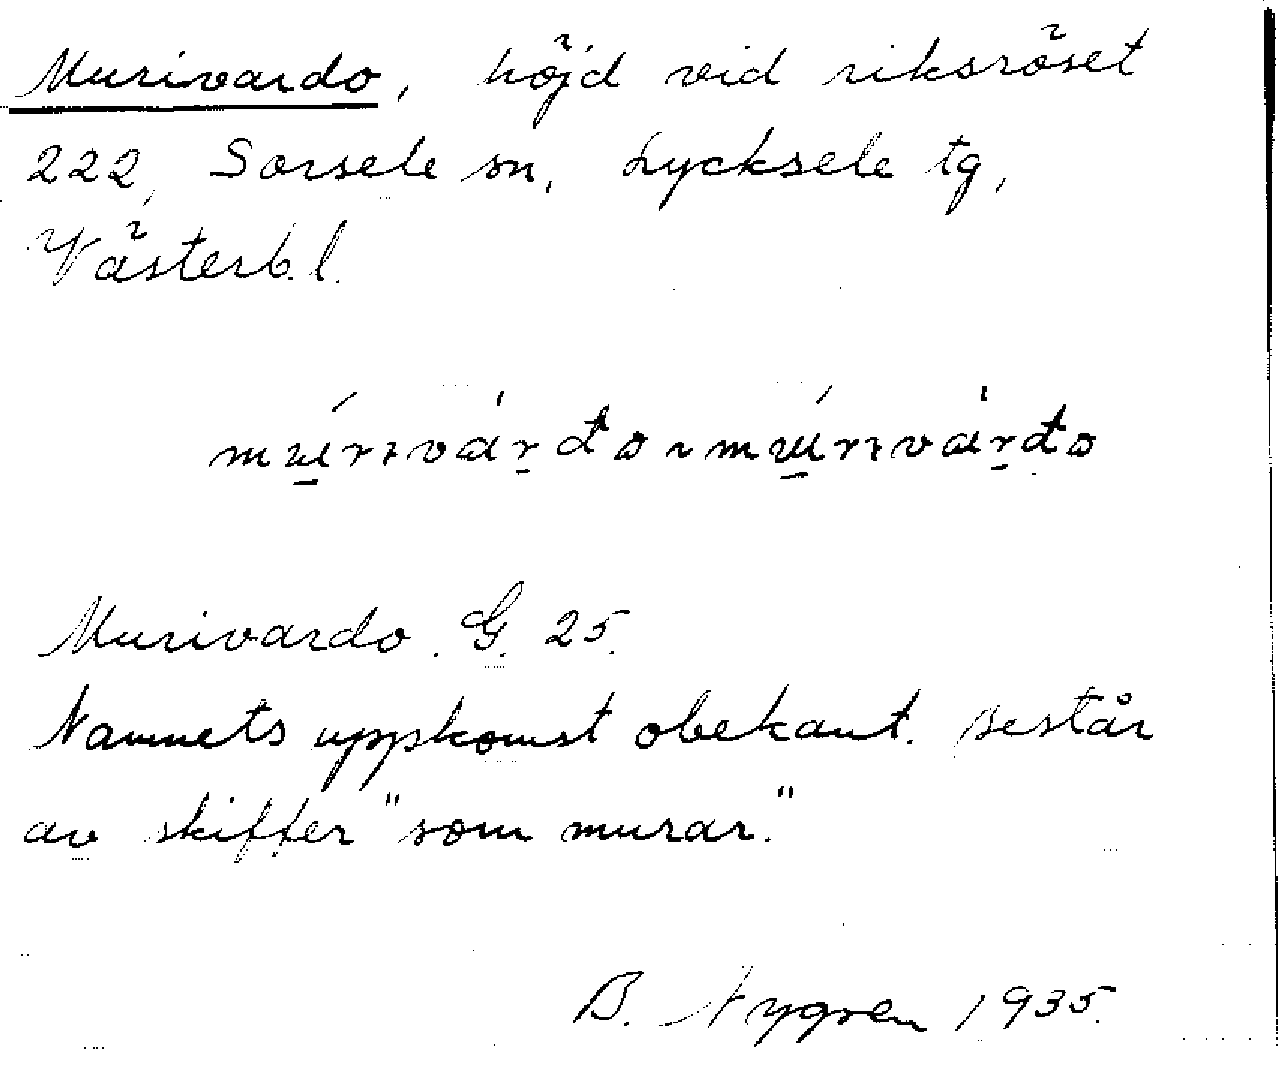 Murivardo, höjd vid riksröset
222, Sorsele sn, Lycksele tg,
Västerb. l.
mɯ́rıvárđo ~ mɯ́rıvárđo
Murivardo. G. 25.
Namnets uppkomst obekant. Består
av skiffer "som murar."
B. Nygren 1935.